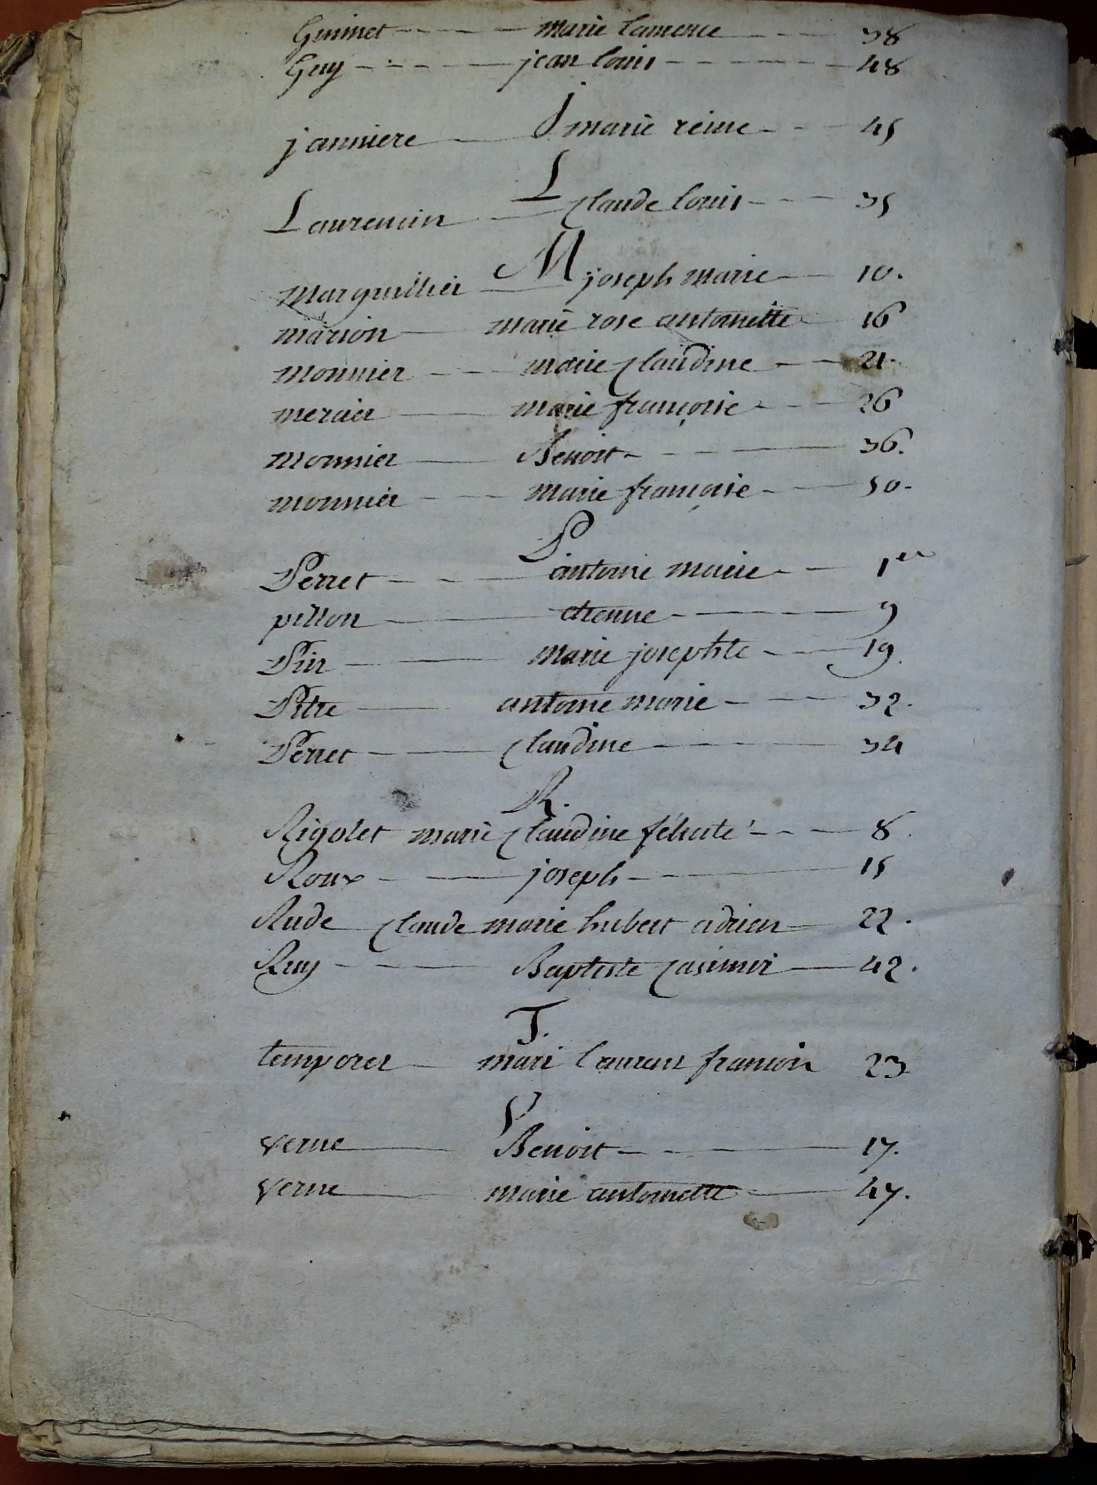 Guinet marie laurence 38
Guy jean louis 48
J
janniere marie reine 45
L
Laurencin Claude louis 35
M
Marguillier joseph marie 10.
marion marie rose antoinette 16
monnier marie Claudine 21.
mercier marie françoise 26
monnier Benoit 36.
monnier marie françoise 50.
P
Perret antoine marie 1er
pillon etienne 9
Pin marie josephte 19
Pitre antoine marie 32.
Perret Claudine 34
R.
Rigolet marie Claudine félicité 8.
Roux joseph 15
Rude Claude marie hubert adrien 22.
Ruy Baptiste Casimir 42.
T.
temporer mari laurent francois 23
V
verne Benoit 17.
verne marie antoinette 47.